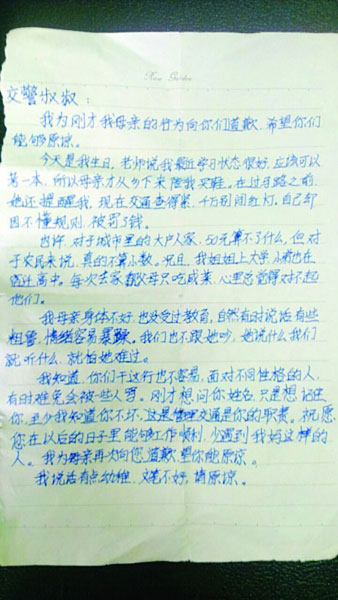 交警叔叔：
我为刚才我母亲的行为向你们道歉，希望你们
能够原谅。
今天是我生日，老师说我最近学习状态很好，应该可以
第一本，所以母亲才从乡下来陪我买鞋。在过马路之前，
她还提醒我，现在交通查得紧，千万别闯红灯。自己却
因不懂规则，被罚了钱。
也许，对于城市里的大户人家，50元算不了什么，但对
于农民来说，真的不算小数。况且，我姐姐上大学，
高中。每次去家，父母只吃咸菜，心里总觉得对不起
他们。
我母亲身体不好，也没受过教育，自然有时说话有些
粗鲁，情绪容易暴躁。我们也不跟她吵，她说什么我们
就听什么，就怕她难过。
我知道，你们干这行也不容易，面对不同性格的人，
有时难免会被些人骂。刚才想问你姓名，只是想记住
你，至少我知道你不坏，这是管理交通是你的职责。祝愿
您在以后的日子里能够工作顺利，少遇到我妈这样的
人。我为母亲再次向您道歉，望你能原谅。
我说话有点幼稚，文笔不好，请原谅。